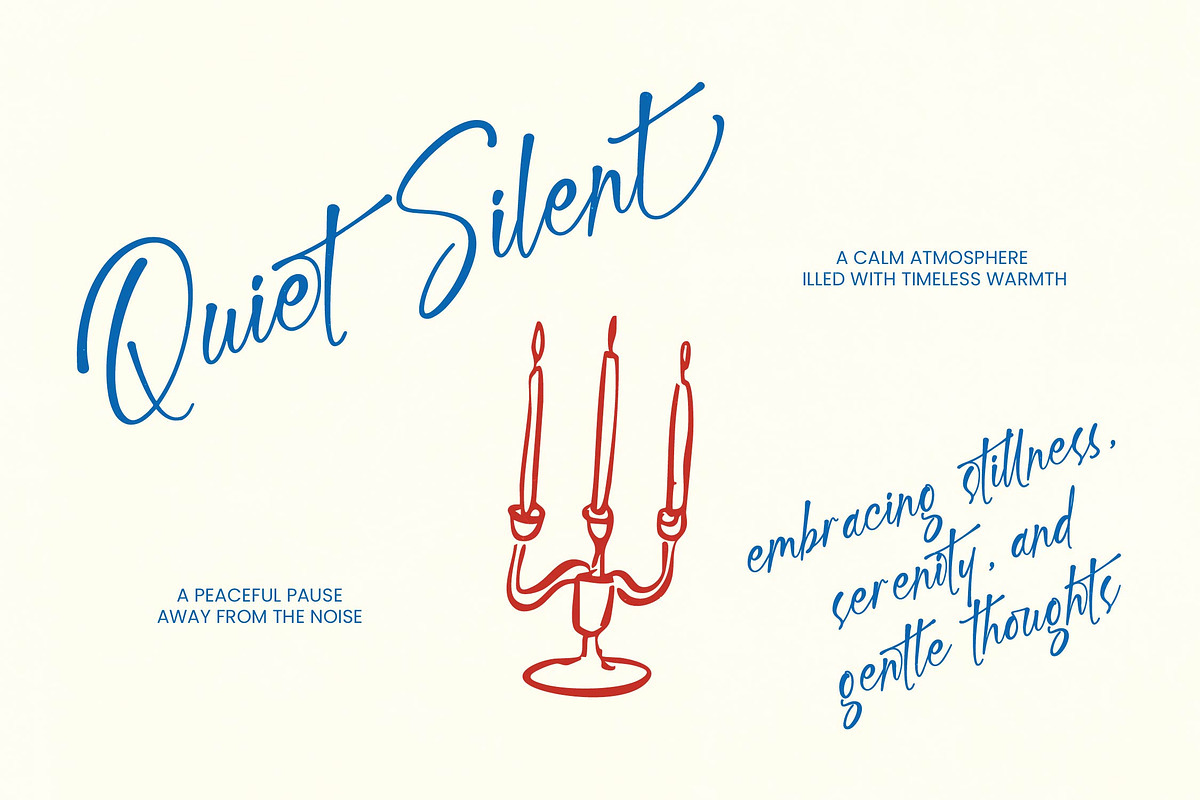 Quiet Silent
A CALM ATMOSPHERE
ILLED WITH TIMELESS WARMTH
embracing stillness,
serenity, and
gentle thoughts
A PEACEFUL PAUSE
AWAY FROM THE NOISE